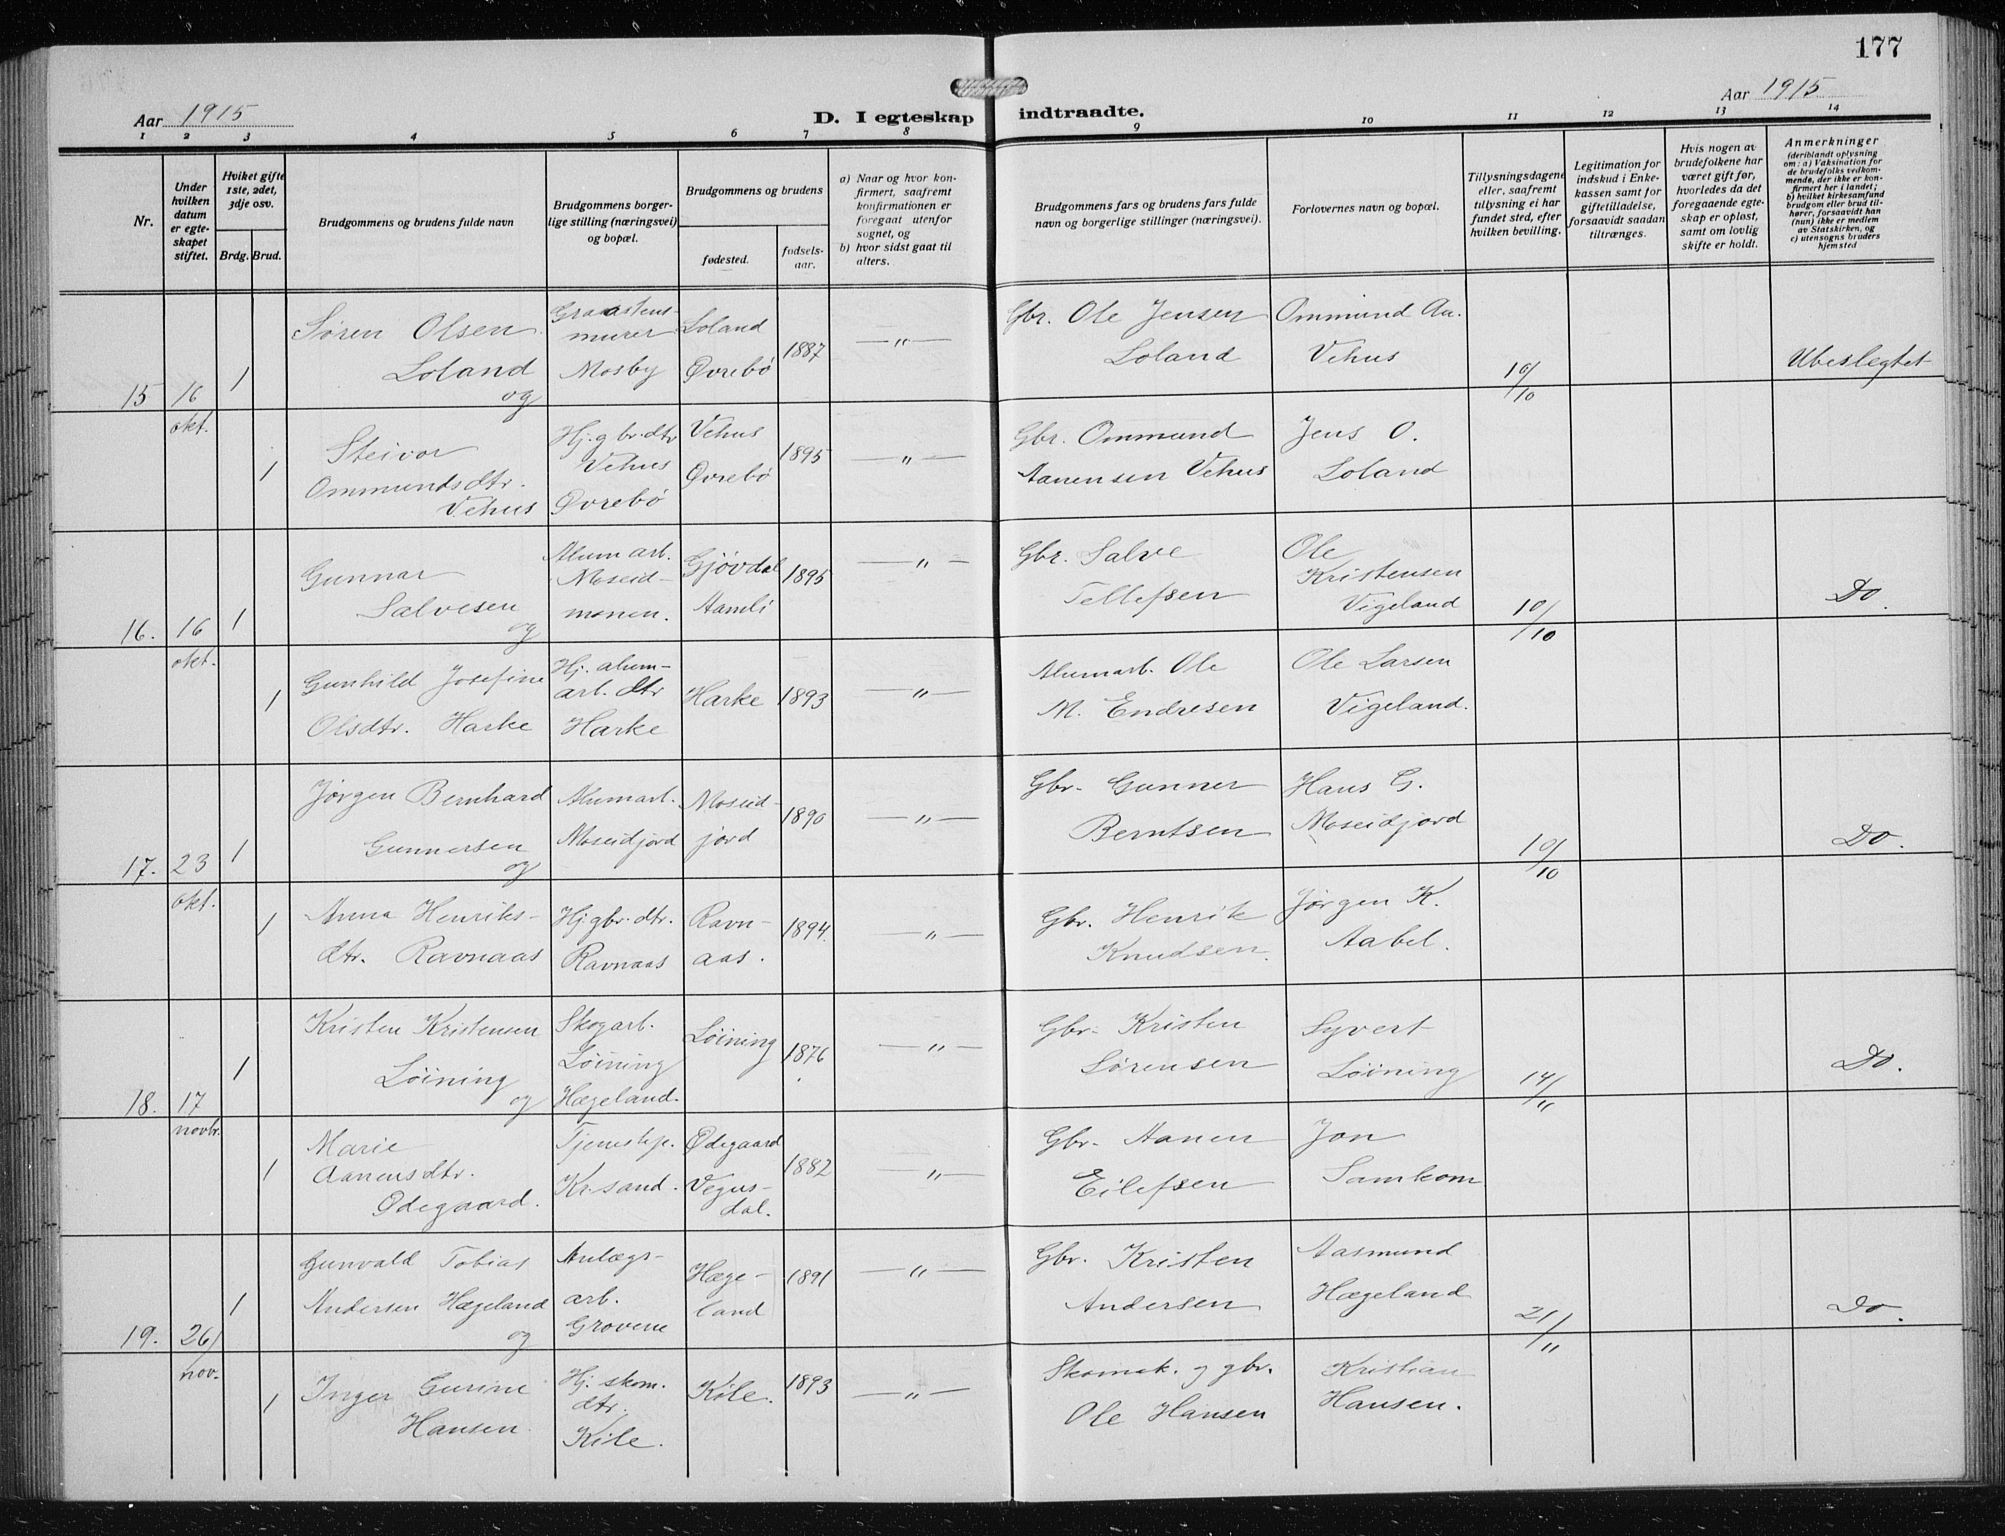 177
Aar 1915
D. I egteskap indtraadte.
Aar 1915
1 2 3 4 5 6 7 8 9 10 11 12 13 14
Nr.
Under hvilken datum er egteskapet stiftet.
Hviket gifte 1ste, 2det, 3dje osv.
Brdg. Brud.
Brudgommens og brudens fulde navn
Brudgommens borgerlige stilling (næringsvei) og bopæl.
Brudgommens og brudens
fødested.
fødselsaar.
a) Naar og hvor konfirmert, saafremt konfirmationen er foregaat utenfor sognet, og
b) hvor sidst gaat til alters.
Brudgommens fars og brudens fars fulde navn og borgerlige stillinger (næringsvei).
Forlovernes navn og bopæl.
Tillysningsdagene eller, saafremt tillysning ei har fundet sted, efter hvilken bevilling.
Legitimation for indskud i Enkekassen samt for giftetilladelse, forsaavidt saadan tiltrænges.
Hvis nogen av brudefolkene har været gift før, hvorledes da det foregaaende egteskap er opløst, samt om lovlig skifte er holdt.
Anmerkninger
(deriblandt oplysning om: a) Vaksination for de brudefolks vedkommende, der ikke er konfirmert her i landet; b) hvilket kirkesamfund brudgom eller brud tilhører, forsaavidt han (hun) ikke er medlem av Statskirken, og c) utensogns bruders hjemsted
15 16 okt. 1
Søren Olsen
Loland
og
Graastens-
murer
Mosby
Loland
Øvrebø
1887
— " —
Gbr. Ole Jensen
Loland
Ommund Aa.
Vehus
10/10
Ubeslegtet
1
Steivor
Ommundsdtr.
Vehus
Hj. gbr. dtr
Vehus
Øvrebø
Vehus
Øvrebø
1895
— " —
Gbr. Ommund
Aanensen Vehus
Jens O.
Loland
16. 16 okt. 1
Gunnar
Salvesen
og
Alum arb.
Moseid-
monen.
Gjøvdal
Aamli
1895
— " —
Gbr. Salve
Tellefsen
Ole
Kristensen
Vigeland
10/10
Do.
1
Gunhild Josefine
Olsdtr. Harke
Hj. alum-
arb. dtr
Harke
Harke
1893
— " —
Alumarb. Ole
M. Endresen
Ole Larsen
Vigeland.
17. 23 okt. 1
Jørgen Bernhard
Gunnersen
og
Alumarb.
Moseidjord
Moseid-
jord
1890
— " —
Gbr. Gunner
Berntsen
Hans G.
Moseidjord
10/10
Do.
1
Anna Henriks-
dtr. Ravnaas
Hj. gbr. dtr.
Ravnaas
Ravn-
aas.
1894.
— " —
Gbr. Henrik
Knudsen.
Jørgen K.
Aabel.
18. 17 novbr. 1
Kristen Kristensen
Løining
og
Skogarb.
Løining
Hægeland.
Løining
1876
— " —
Gbr. Kristen
Sørensen
Syvert
Løining
14/11
Do.
1
Marie
Aanensdtr.
Ødegaard.
Tjenestep.
Kr.sand.
Ødegaard
Vegus-
dal.
1882
— " —
Gbr. Aanen
Eilefsen
Jon
Samkom
19. 26/nov. 1
Gunvald Tobias
Andersen Hægeland
og
Anlægs-
arb.
Grovene
Hæge-
land
1891
— " —
Gbr. Kristen
Andersen
Aasmund
Hægeland
21/11
Do.
1
Inger Gurine
Hansen.
Hj. skom.
dtr.
Kile.
Kile.
1893
— " —
Skomak. og gbr.
Ole Hansen
Kristian
Hansen.